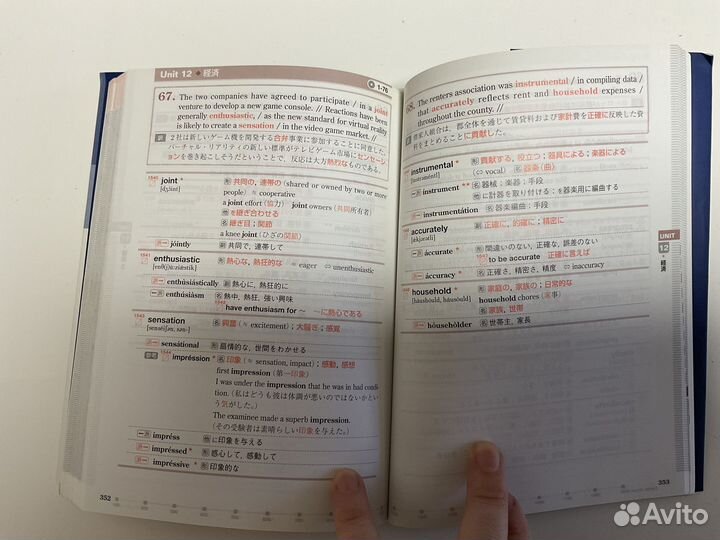 Unit 12 ◆ 経済
1-76
67. The two companies have agreed to participate / in a joint
venture to develop a new game console. // Reactions have been
generally enthusiastic, / as the new standard for virtual reality
is likely to create a sensation / in the video game market. //
訳 2社は新しいゲーム機を開発する合弁事業に参加することに同意した。
バーチャル・リアリティの新しい標準がテレビゲーム市場にセンセーシ
ョンを巻き起こしそうだということで、反応は大方熱烈なものである。
1540 joint 形 共同の, 連帯の (shared or owned by two or more
[dʒɔ́int] people) ≒ cooperative
a joint effort (協力) joint owners (共同所有者)
他 を継ぎ合わせる
名 継ぎ目；関節
a knee joint (ひざの関節)
jóintly 副 共同で, 連帯して
1541 enthusiastic 形 熱心な, 熱狂的な ≒ eager ⇔ unenthusiastic
enthùsiástically 副 熱心に, 熱狂的に
enthúsiàsm 名 熱中, 熱狂, 強い興味
1542 have enthusiasm for ～ ～に熱心である
1543 sensation 名 興奮 (≒ excitement)；大騒ぎ；感覚
sensátional 形 扇情的な, 世間をわかせる
参考 1544 impréssion * 名 印象 (≒ sensation, impact)；感動, 感想
first impression (第一印象)
I was under the impression that he was in bad condi-
tion. (私はどうも彼は体調が悪いのではないかとい
う気がした。)
The examinee made a superb impression.
(その受験者は素晴らしい印象を与えた。)
impréss 他 に印象を与える
impréssed * 形 感心して, 感動して
impréssive * 形 印象的な
352
68. The renters association was instrumental / in compiling data /
that accurately reflects rent and household expenses /
throughout the county. //
借家人組合は、郡全体を通じて賃貸料および家計費を正確に反映した資
料をまとめることに貢献した。
instrumental * 形 貢献する, 役立つ；器具による；楽器による
(⇔ vocal) 名 器楽 (曲)
ínstrument ** 名 器械；楽器；手段
他 に計器を取り付ける；を器楽用に編曲する
instrumentátion 名 器楽編曲；手段
accurately 副 正確に, 的確に；精密に
áccurate * 形 間違いのない, 正確な, 誤差のない
1547 to be accurate 正確に言えば
áccuracy * 名 正確さ, 精密さ, 精度 ⇔ inaccuracy
household * 形 家庭の, 家族の；日常的な
household chores (家事)
名 家族, 世帯
hóusehòlder 名 世帯主, 家長
UNIT
12
◆経済
353
Avito